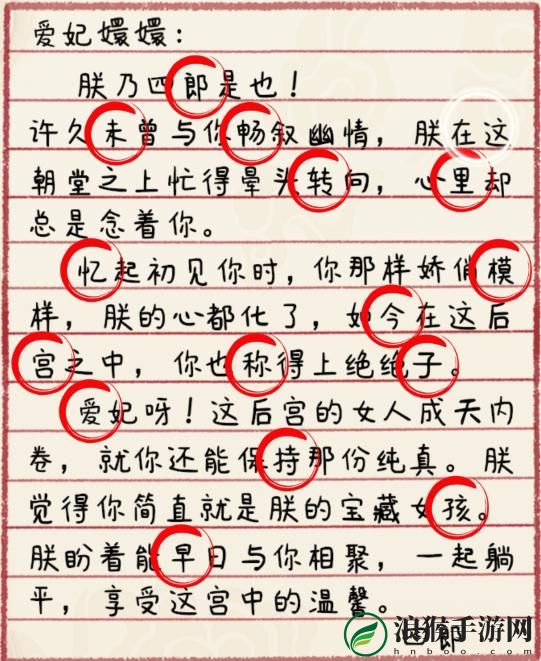 爱妃嬛嬛:
朕乃四郎是也!
许久未曾与你畅叙幽情,朕在这
朝堂之上忙得晕头转向,心里却
总是念着你。
忆起初见你时,你那样娇俏模
样,朕的心都化了,如今在这后
宫之中,你也称得上绝绝子。
爱妃呀!这后宫的女人成天内
卷,就你还能保持那份纯真。朕
觉得你简直就是朕的宝藏女孩。
朕盼着能早日与你相聚,一起躺
平,享受这宫中的温馨。
四郎
浪猴手游网
hnboo.com